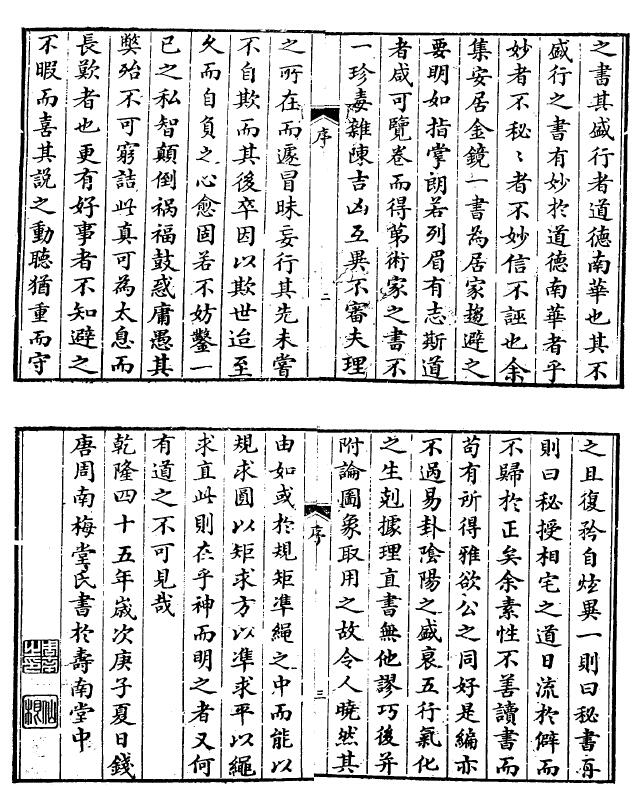 之書其盛行者道德南華也其不
盛行之書有妙於道德南華者乎
妙者不秘〻者不妙信不誣也余
集安居金鏡一書為居家趨避之
要明如指掌朗若列眉有志斯道
者咸可覽卷而得第術家之書不
一珍毒雜陳吉凶互異不審夫理
序
二
之所在而遽冒昧妄行其先未嘗
不自欺而其後卒因以欺世迨至
久而自負之心愈固若不妨鑿一
己之私智顛倒禍福鼓惑庸愚其
弊殆不可窮詰此真可為太息而
長歎者也更有好事者不知避之
不暇而喜其説之動聽猶重而守
之且復矜自炫異一則曰秘書再
則曰秘授相宅之道日流於僻而
不歸於正矣余素性不善讀書而
苟有所得雅欲公之同好是編亦
不過易卦陰陽之盛衰五行氣化
之生剋據理直書無他謬巧後并
附論圖象取用之故令人曉然其
序
三
由如或於規矩準繩之中而能以
規求圓以矩求方以準求平以繩
求直此則在乎神而明之者又何
有道之不可見哉
乾隆四十五年歲次庚子夏日錢
唐周南梅堂氏書於壽南堂中